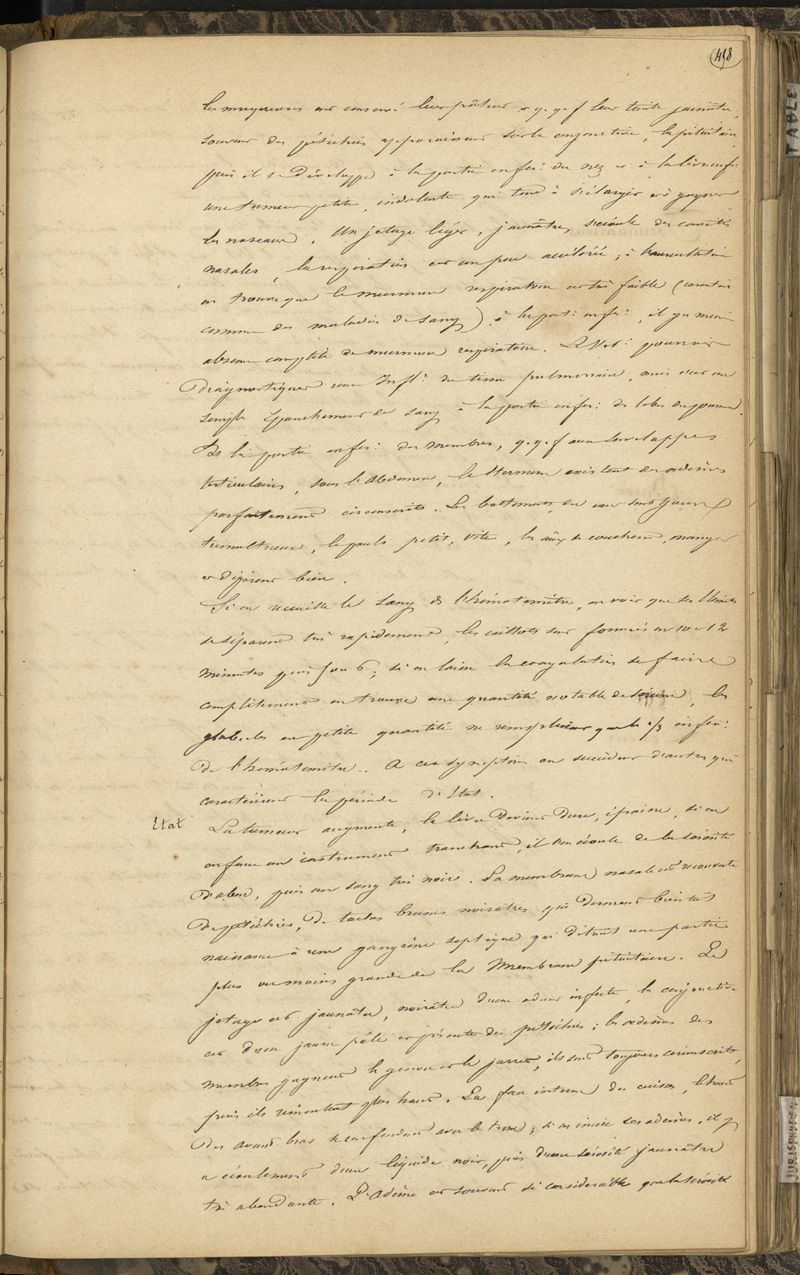 418
les muqueuses ont conservé leur pâleur et q.q.f leur teinte jaunâtre,
souvent des pétéchies apparaissent sur la conjonctive, la pituitaire
puis il se développe à la partie infér: du nez et à la lèvre infr:
une tumeur petite, indolente qui tend à s'élargir et à gagner
les naseaux. Un jetage léger, jaunâtre, s'écoule des cavités
nasales, la respiration est un peu accélérée, à l'auscultation
on trouve que le murmure respiratoire est très faible (caractère
commun des maladies du sang) à la part: infér:, il y a même
absence complète de murmure respiratoire. Le Vét: pourrait
diagnostiquer une Infl: du tissu pulmonaire, mais c'est un
simple épanchement de sang à la partie infér: des lobes du poumon.
Ds la partie infér: des membres, q.q.f aux enveloppes
testiculaires, sous l'abdomen, le sternum existent des œdèmes
parfaitement circonscrits. Les battements du cœur sont
tumultueux, le pouls petit, vite, les aux se couchent, mangent
et digèrent bien.
Si on recueille le sang ds l'hématomètre, on voit que ses éléments
se séparent très rapidement, les caillots sont formés en 10 et 12
minutes puis 5 ou 6; si on laisse la coagulation se faire
complètement on trouve une quantité notable de sérum, les
globules en petite quantité ne remplissent que le 1/3 infér:
de l'hématomètre. A ces symptômes en succèdent d'autres qui
caractérisent la période d'État.
Etat La tumeur augmente, la lèvre devient dure, épaisse, si on
enfonce un instrument tranchant, il s'en écoule de la sérosité
d'abord, puis un sang très noir. La membrane nasale est recouverte
de pétéchies, de taches brunes noirâtres qui donnent bientôt
naissance à une gangrène septique qui détruit une partie
plus ou moins grande de la Membrane pituitaire. Le
jetage est jaunâtre, noirâtre d'une odeur infecte, la conjonctive
est d'un jaune pâle et présente des pétéchies; les œdèmes des
membres gagnent le genou et le jarret, ils sont toujours circonscrits,
puis ils remontent plus haut. La face interne des cuisses, le haut
des avant bras se confondent avec le tronc; si on incise ces œdèmes, il y
a écoulement d'un liquide noir, puis d'une sérosité jaunâtre
très abondante. L'œdème est souvent si considérable que la sérosité
TABLE
JURISPRUDEN